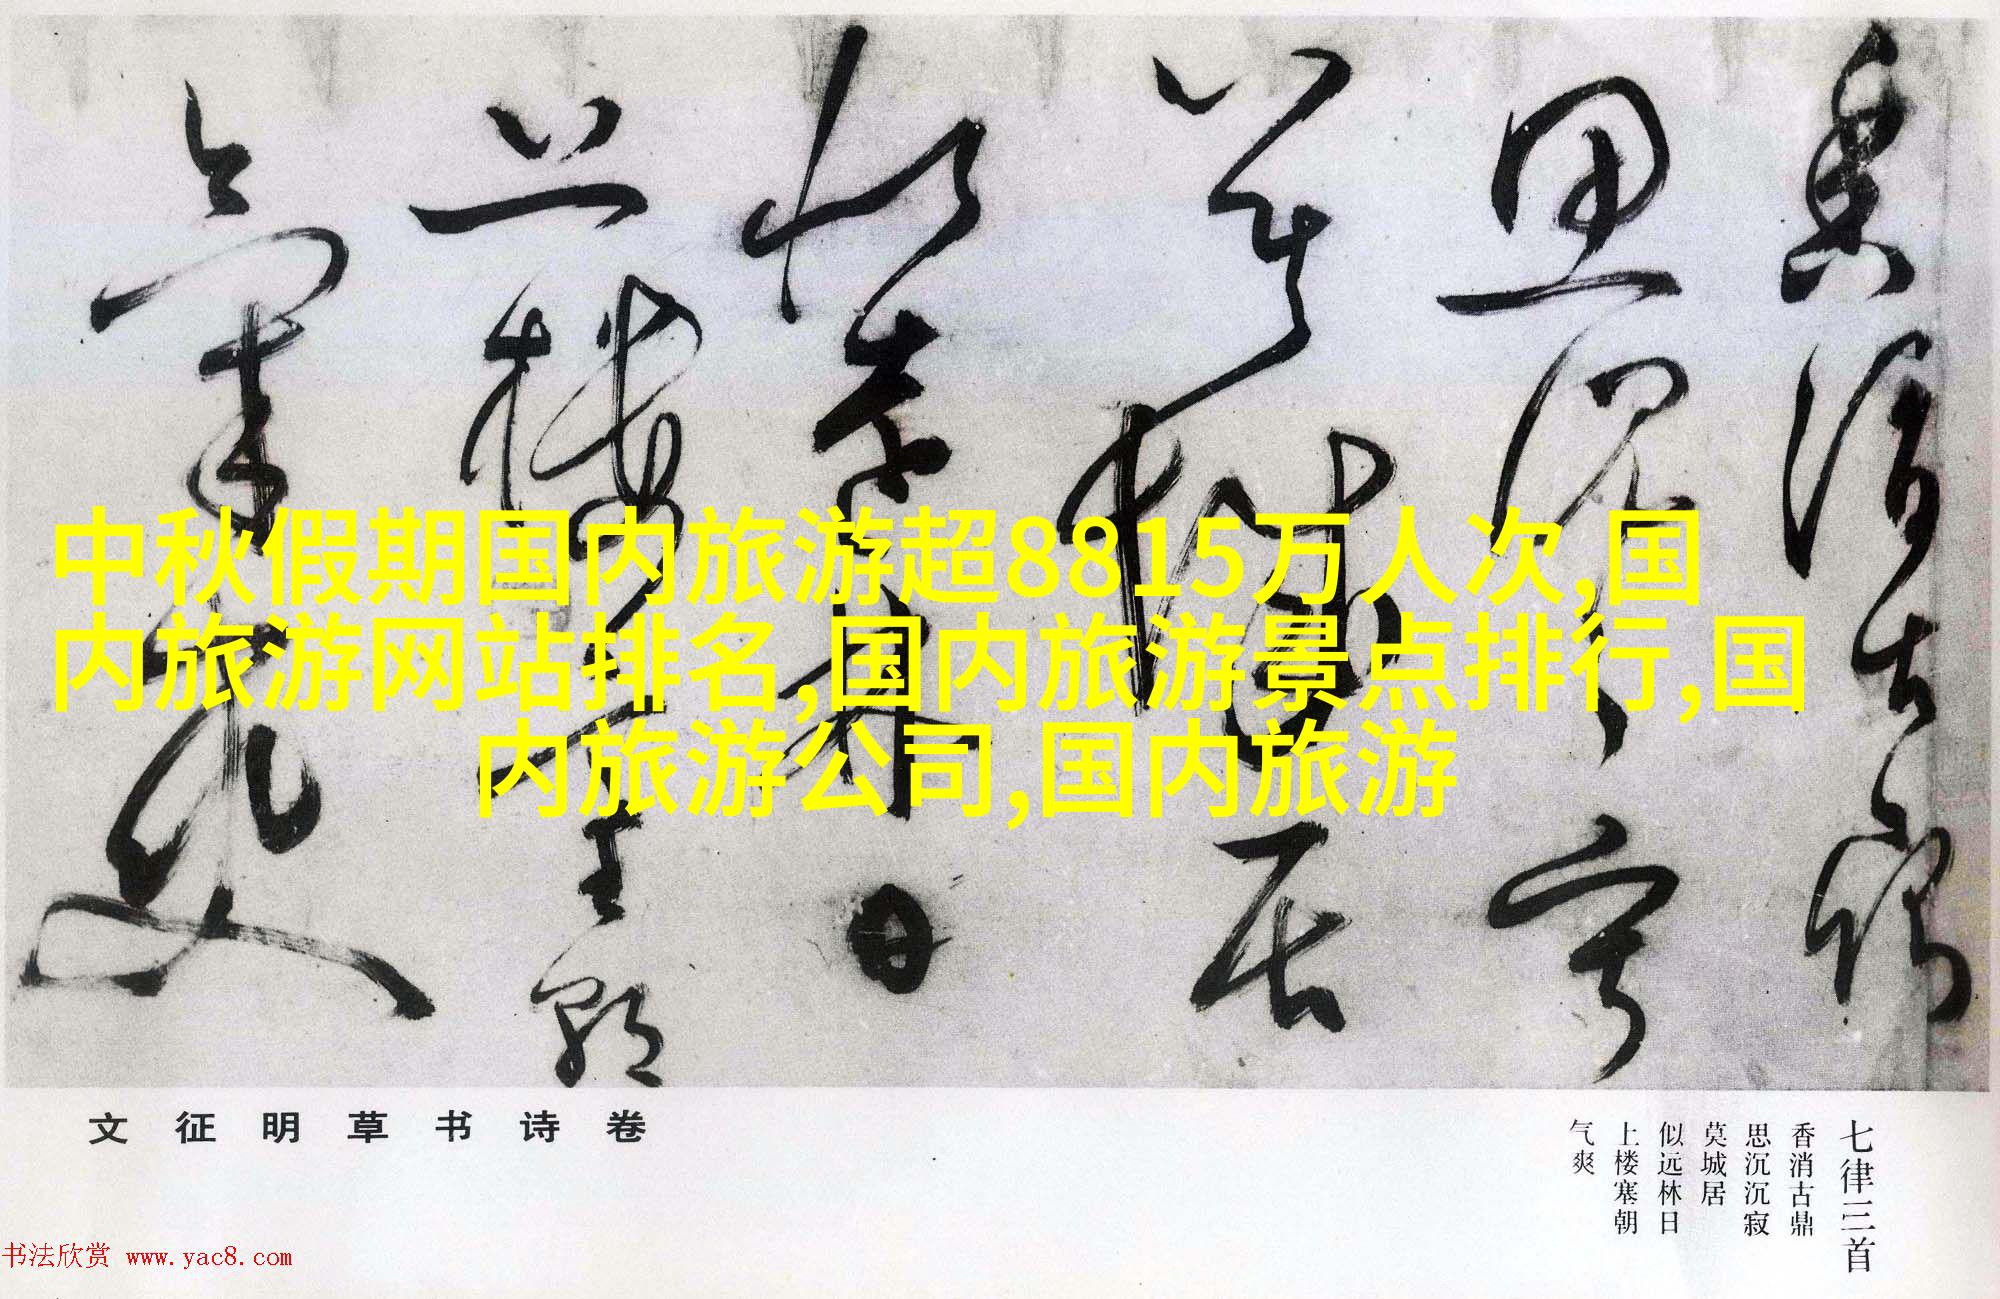 香消古鼎
思沉沉寂
莫城居
似远林日
上楼塞朝
气爽
中秋假期国内旅游超8815万人次,国
内旅游网站排名,国内旅游景点排行,国
内旅游公司,国内旅游
文征明草书诗卷
七律三首
香消古鼎
思沉沉寂
莫城居
似远林日
上楼塞朝
气爽
书法欣赏 www.yac8.com